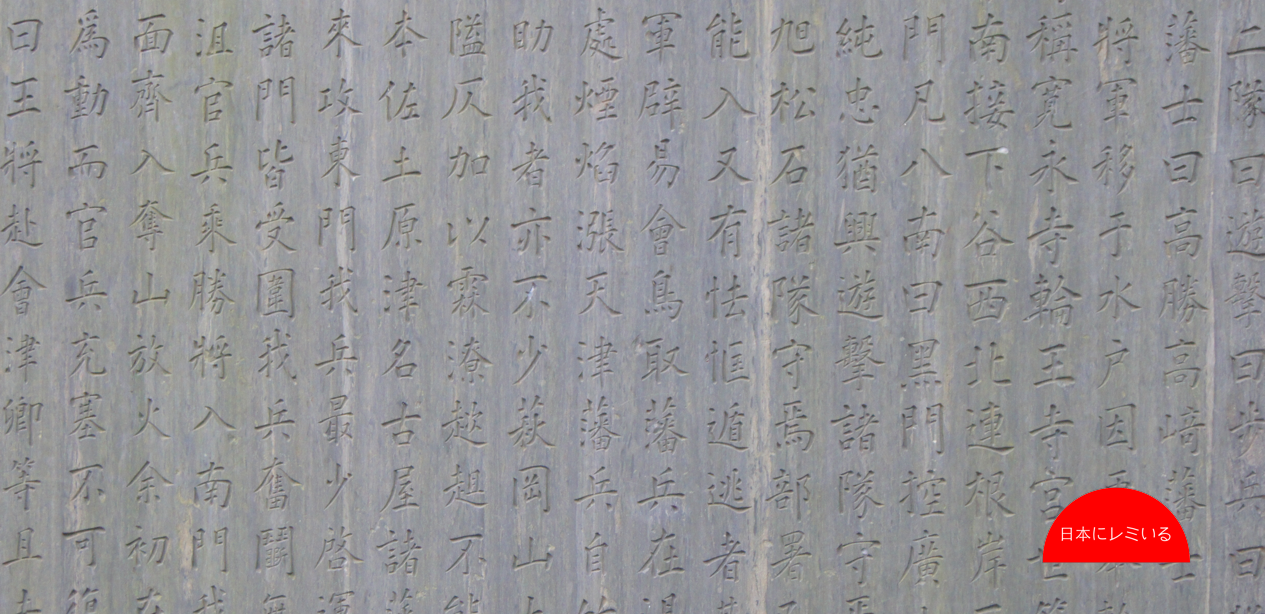 二隊曰遊擊曰步兵曰
藩士曰高勝高﨑藩士
將軍移于水户因
稱寛永寺輪王寺宮
南接下谷西北連根岸
門凡八南曰黑門控廣
純忠猶興遊擊諸隊守
旭松石諸隊守焉部署
能入又有怯恇遁逃者
軍辟易會鳥取藩兵在
處煙焰漲天津藩兵自
助我者亦不少萩岡山
隘仄加以霖潦趑趄不能
本佐土原津名古屋諸藩
來攻東門我兵最少啓運
諸門皆受圍我兵奮鬭無
沮官兵乘勝將入南門我
面齊入奪山放火余初在
爲動而官兵充塞不可復
曰王將赴會津卿等且
日本にレミいる